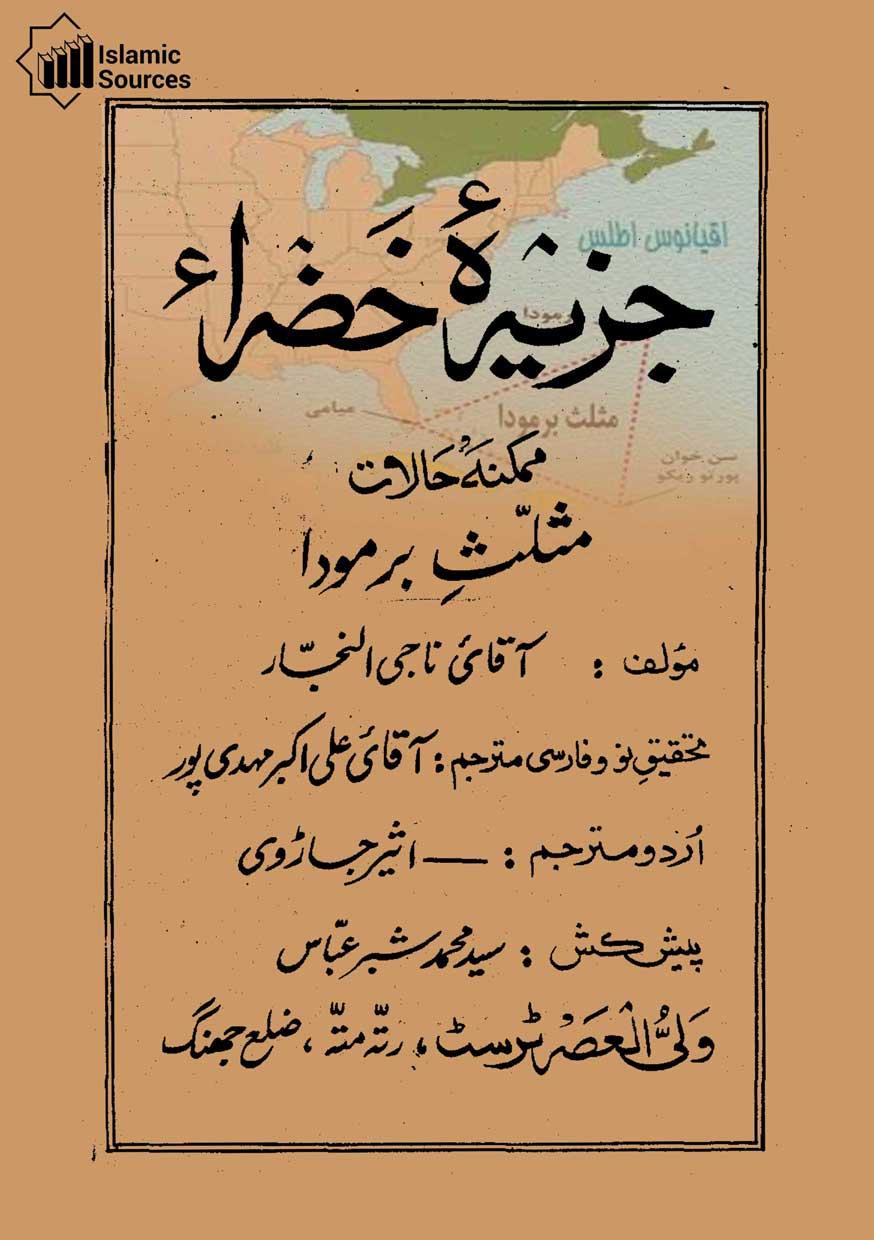 Islamic
Sources
اقیانوس اطلس
جزیرۂ خَضراء
میامی
مثلث برمودا
سن خوان
پورتو ریکو
ممکنہ حالات
مثلّثِ برمودا
مؤلف : آقائ ناجی النجّار
تحقیقِ نو و فارسی مترجم : آقائ علی اکبر مہدی پور
اُردو مترجم : — اثیر جاڑوی
پیش کش : سید محمد شبر عبّاس
وَلیُّ الْعَصْر ٹرسٹ، رتّہ متّہ، ضلع جھنگ